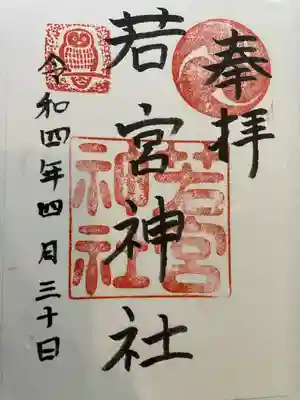 奉拝
若宮神社
若宮
神社
令和四年四月三十日